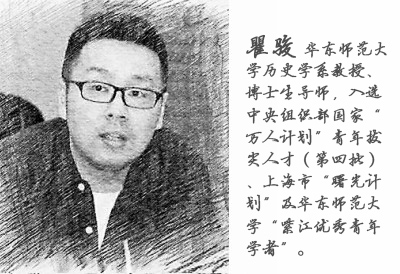 瞿骏 华东师范大
学历史学系教授、
博士生导师，入选
中央组织部国家“
万人计划”青年拔
尖人才（第四批）
、上海市“曙光计
划”及华东师范大
学“紫江优秀青年
学者”。